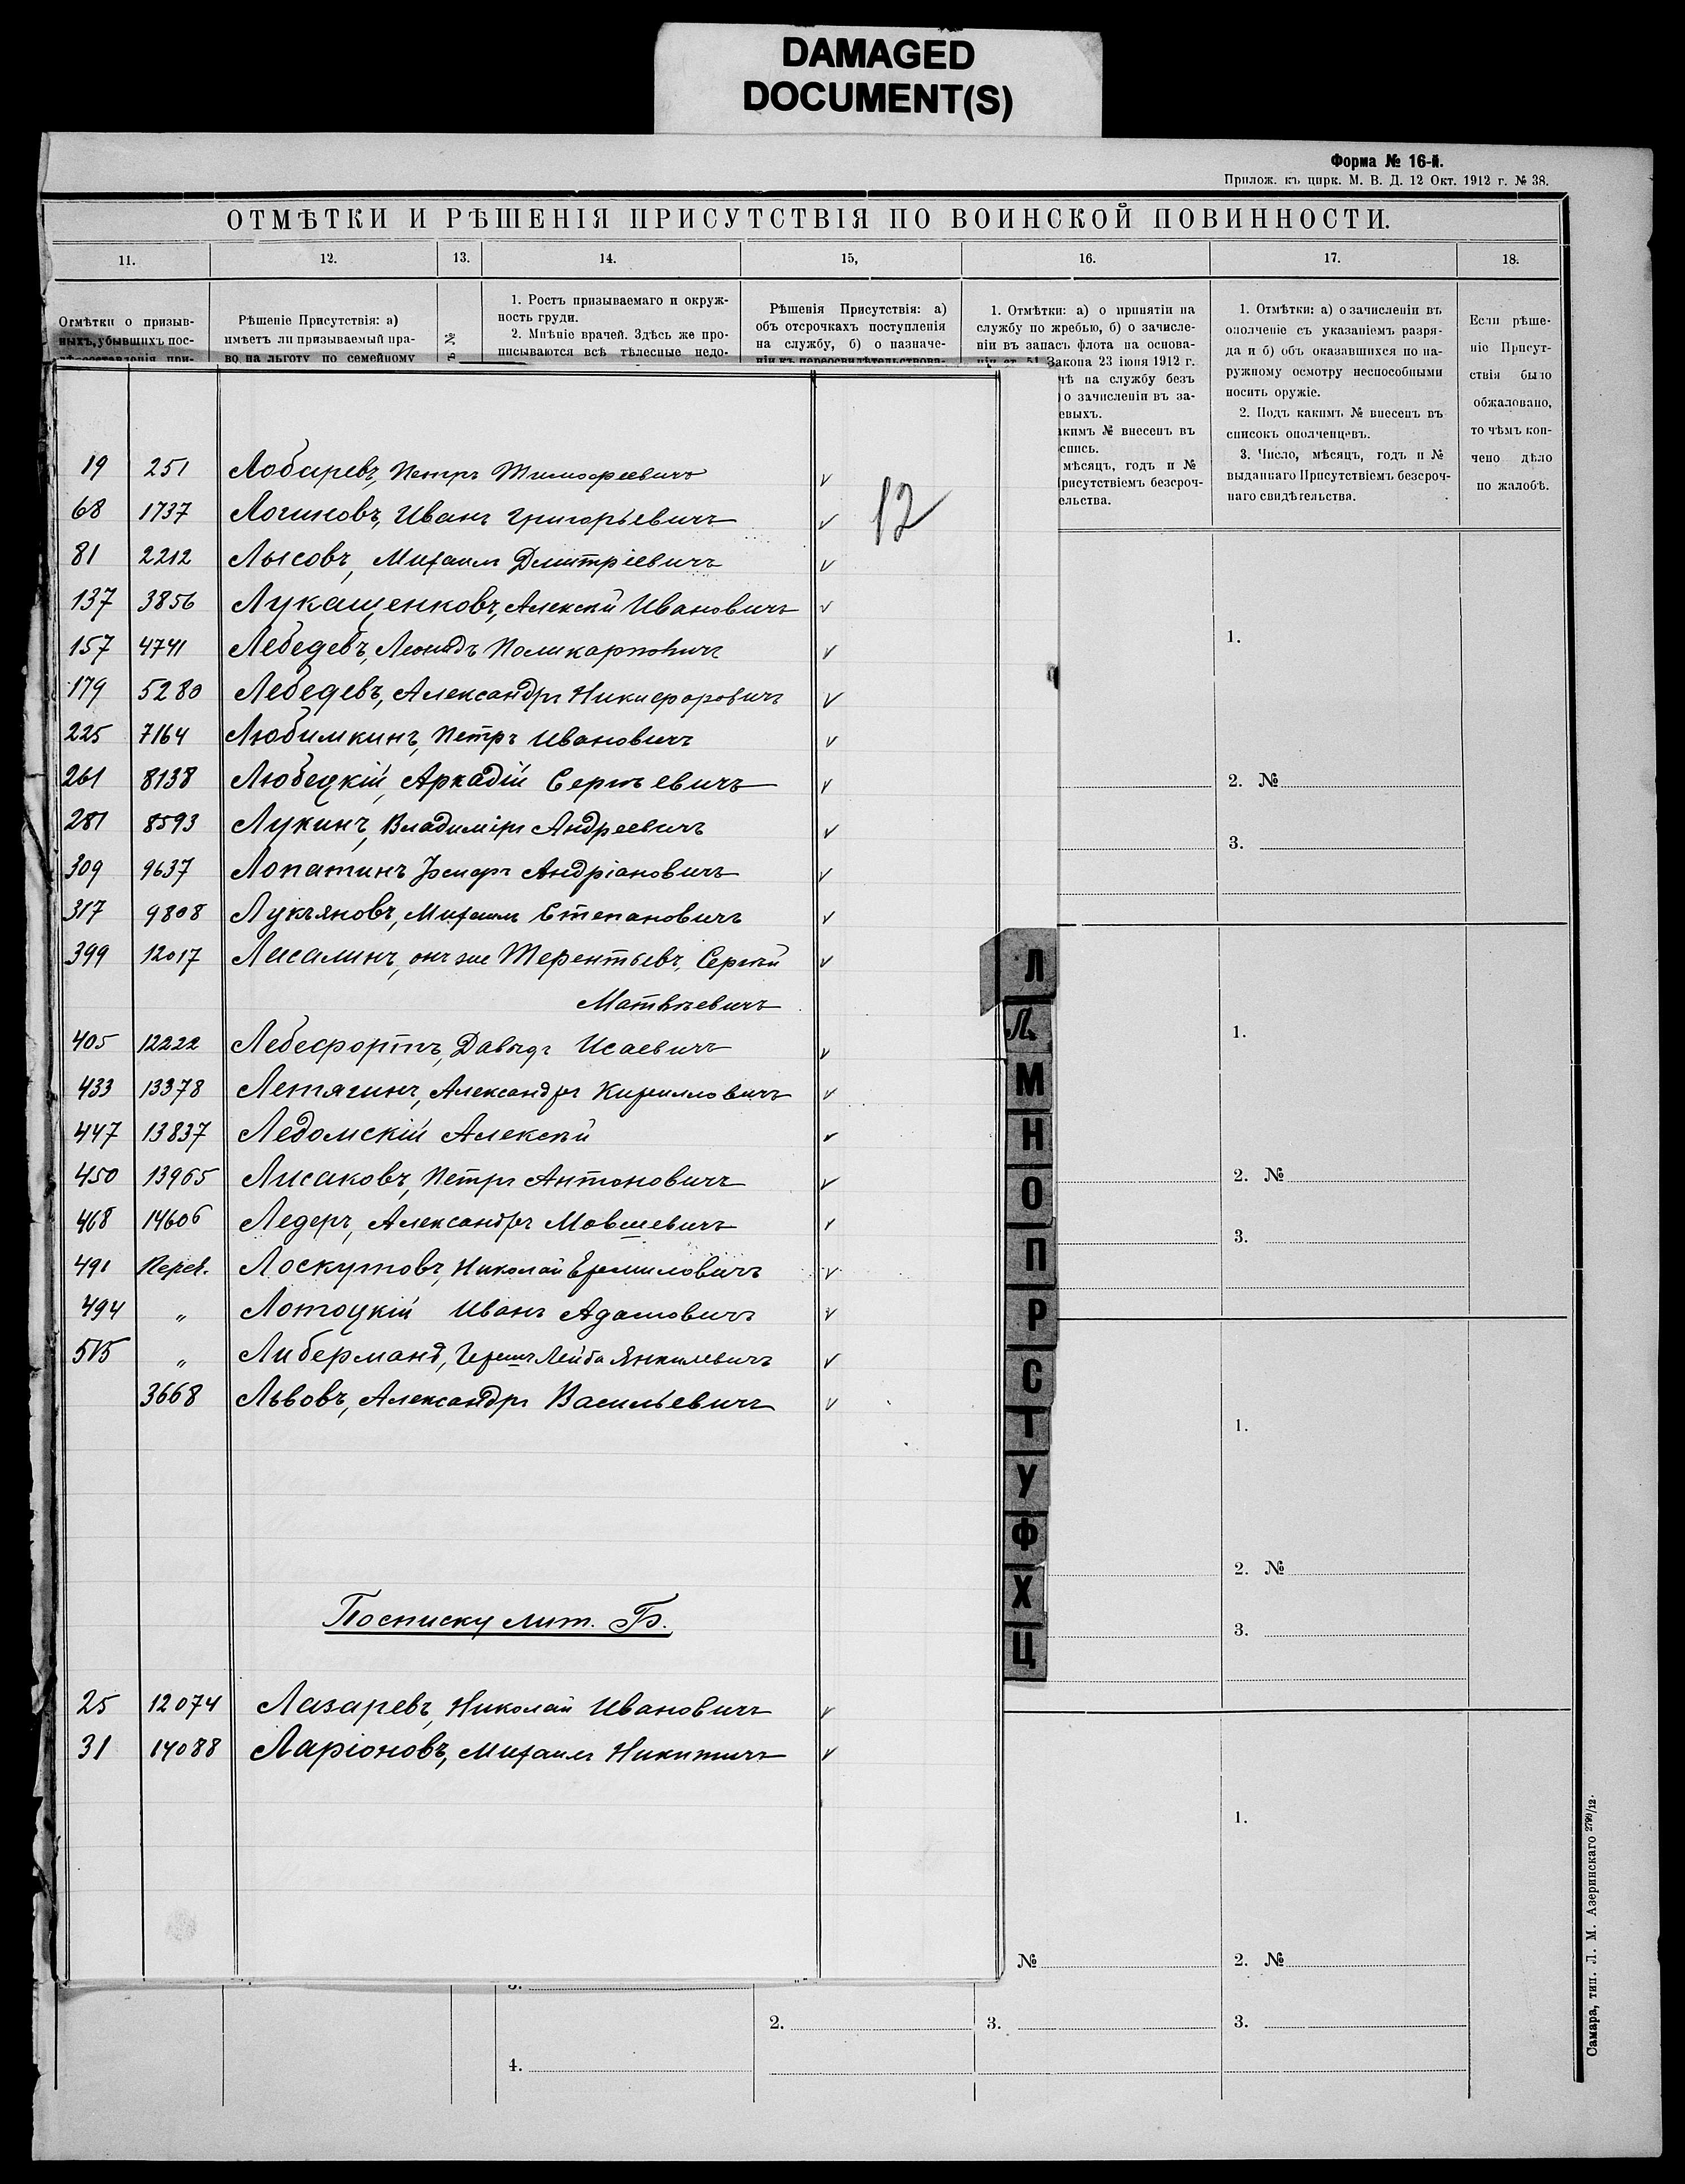 DAMAGED
DOCUMENT(S)
Форма № 16-й.
Прилож. къ цирк. М. В. Д. 12 Окт. 1912 г. № 38.
ОТМѢТКИ И РѢШЕНІЯ ПРИСУТСТВІЯ ПО ВОИНСКОЙ ПОВИННОСТИ.
11. 12. 13. 14. 15, 16. 17. 18.
Отмѣтки о призыв-
ныхъ, убывшихъ пос-
Рѣшеніе Присутствія: а)
имѣетъ ли призываемый пра-
во на льготу по семейному
№
1. Ростъ призываемаго и окруж-
ность груди.
2. Мнѣніе врачей. Здѣсь же про-
писываются всѣ тѣлесные недо-
Рѣшенія Присутствія: а)
объ отсрочкахъ поступленія
на службу, б) о назначе-
ніи къ переосвидѣтельствова-
1. Отмѣтки: а) о принятіи на
службу по жребью, б) о зачисле-
ніи въ запасъ флота на основа-
ніи ст. 51 Закона 23 іюня 1912 г.
на службу безъ
о зачисленіи въ за-
евыхъ.
кимъ № внесенъ въ
спись.
мѣсяцъ, годъ и №
Присутствіемъ безсроч-
ельства.
1. Отмѣтки: а) о зачисленіи въ
ополченіе съ указаніемъ разря-
да и б) объ оказавшихся по на-
ружному осмотру неспособными
носить оружіе.
2. Подъ какимъ № внесенъ въ
списокъ ополченцевъ.
3. Число, мѣсяцъ, годъ и №
выданнаго Присутствіемъ безсроч-
наго свидѣтельства.
Если рѣше-
ніе Присут-
ствія было
обжаловано,
то чѣмъ кон-
чено дѣло
по жалобѣ.
19 251 Лобаревъ, Петръ Тимофеевичъ
12
68 1737 Логиновъ, Иванъ Григорьевичъ
81 2212 Лысовъ, Михаилъ Дмитріевичъ
137 3856 Лукащенковъ, Алексѣй Ивановичъ
157 4741 Лебедевъ, Леонидъ Поликарповичъ
179 5280 Лебедевъ, Александръ Никифоровичъ
225 7164 Любимкинъ, Петръ Ивановичъ
261 8138 Любецкій, Аркадій Сергѣевичъ
281 8593 Лукинъ, Владиміръ Андреевичъ
309 9637 Лопатинъ Іосифъ Андріановичъ
317 9808 Лукъяновъ, Михаилъ Степановичъ
399 12017 Лисалинъ, онъ же Терентьевъ, Сергѣй
Матвѣевичъ
405 12222 Лебефортъ, Давыдъ Исаевичъ
433 13378 Летягинъ, Александръ Кирилловичъ
447 13837 Ледомскій Алексѣй
450 13965 Лисаковъ, Петръ Антоновичъ
468 14606 Ледеръ, Александръ Мовшевичъ
491 Перев. Лоскутовъ, Николай Ермиловичъ
494 " Лотоцкій Иванъ Адамовичъ
515 " Либерманъ, Гершъ Лейба Янкилевичъ
3668 Львовъ, Александръ Васильевичъ
По списку лит. Б.
25 12074 Лазаревъ, Николай Ивановичъ
31 14088 Ларіоновъ, Михаилъ Никитичъ
Л
Л
М
Н
О
П
Р
С
Т
У
Ф
Х
Ц
1.
2. №
3.
1.
2. №
3.
1.
2. №
3.
1.
№ 2. №
2. 3. 3.
4.
Самара, тип. Л. М. Азеринскаго 2799/12.